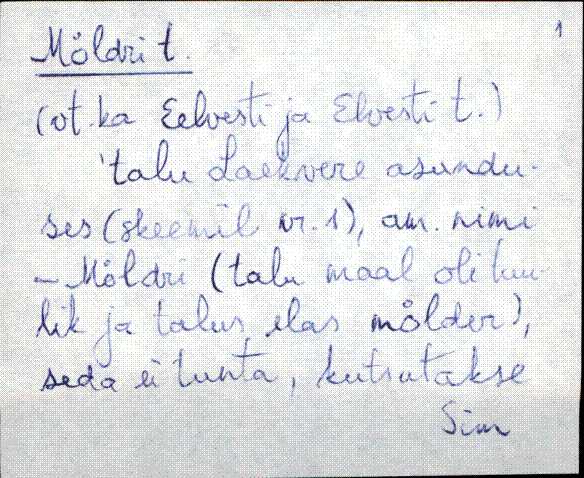 1
Möldri t.
(vt. ka Eelvesti ja Elvesti t.)
'talu Laekvere asundu-
ses (skeemil nr. 1), am. nimi
– Möldri (talu maal oli tuu-
lik ja talus elas mölder),
seda ei tunta, kutsutakse
Sim